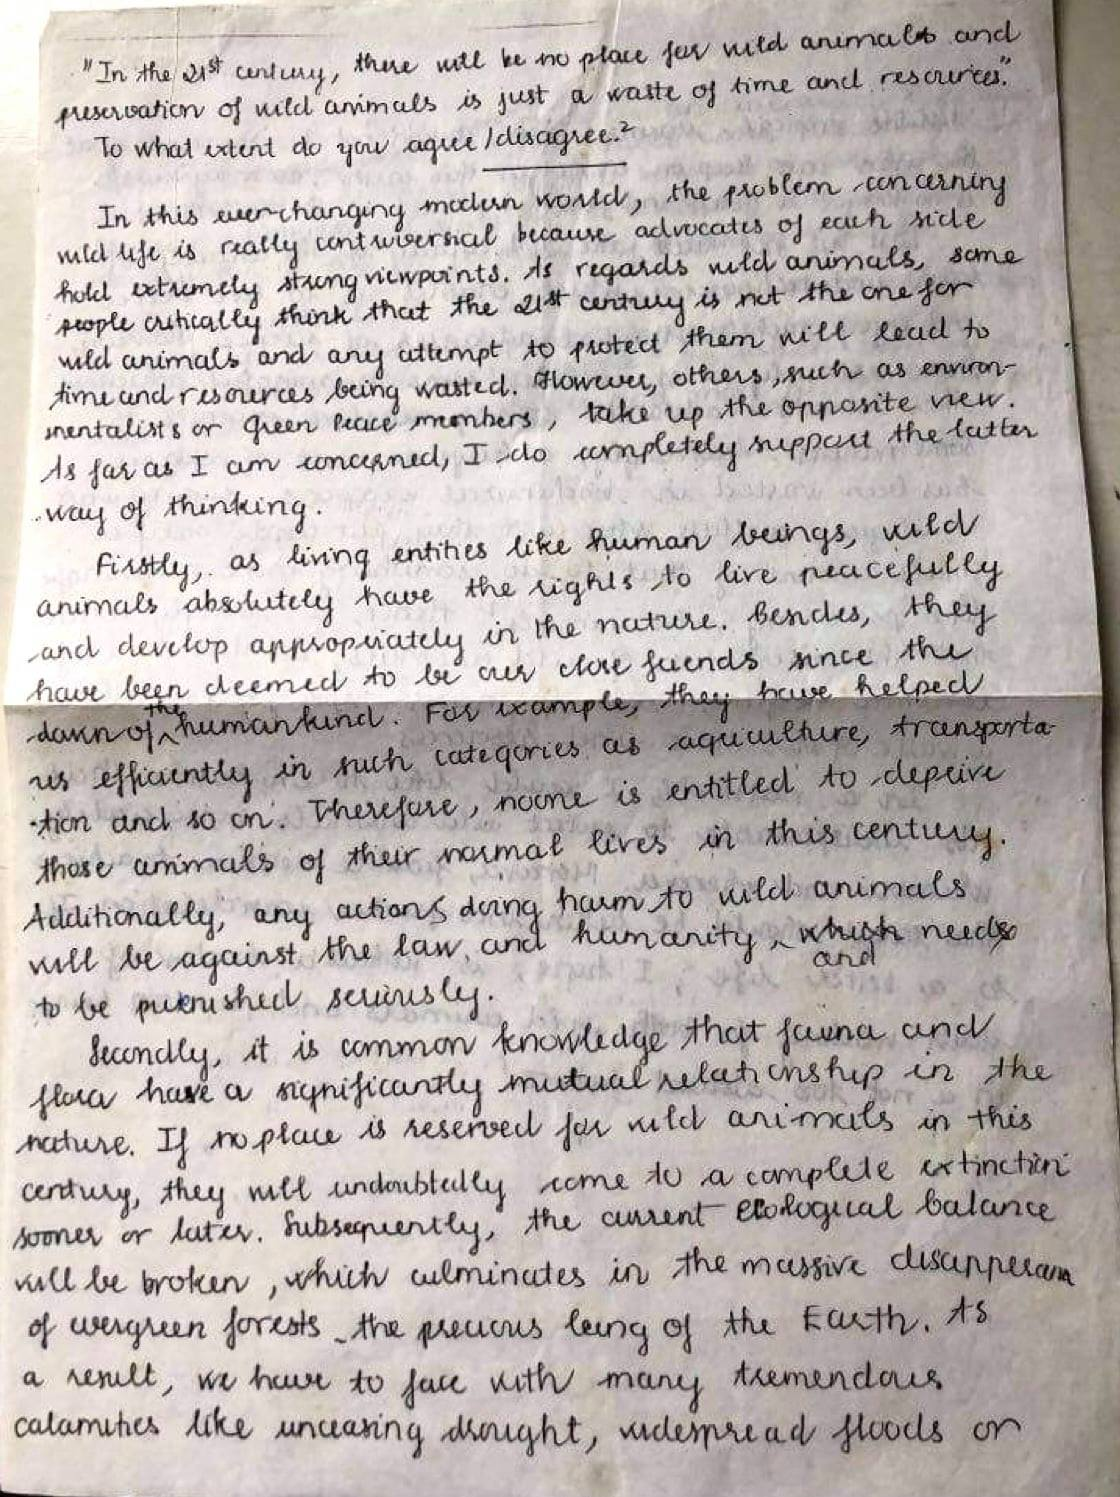 "In the 21st century, there will be no place for wild animals and
preservation of wild animals is just a waste of time and resources."
To what extent do you agree/disagree.?
In this ever-changing modern world, the problem concerning
wild life is really controversial because advocates of each side
hold extremely strong viewpoints. As regards wild animals, some
people critically think that the 21st century is not the one for
wild animals and any attempt to protect them will lead to
time and resources being wasted. However, others, such as environ-
mentalists or Green Peace members, take up the opposite view.
As far as I am concerned, I do completely support the latter
way of thinking.
Firstly, as living entities like human beings, wild
animals absolutely have the rights to live peacefully
and develop appropriately in the nature. Besides, they
have been deemed to be our close friends since the
dawn of the humankind. For example, they have helped
us efficiently in such categories as agriculture, transporta-
tion and so on. Therefore, noone is entitled to deprive
those animals of their normal lives in this century.
Additionally, any actions doing harm to wild animals
will be against the law and humanity, which needs
and
to be punished seriously.
Secondly, it is common knowledge that fauna and
flora have a significantly mutual relationship in the
nature. If no place is reserved for wild animals in this
century, they will undoubtedly come to a complete extinction
sooner or later. Subsequently, the current ecological balance
will be broken, which culminates in the massive
of evergreen forests - the precious lung of the Earth. As
a result, we have to face with many tremendous
calamities like unceasing drought, widespread floods or